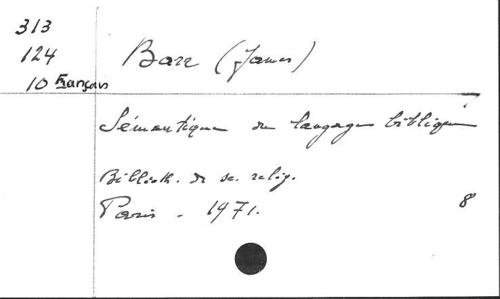 313
124
10 Français
Barr (James)
Sémantique du langage biblique
Biblioth. de sc. relig.
Paris - 1971.
8